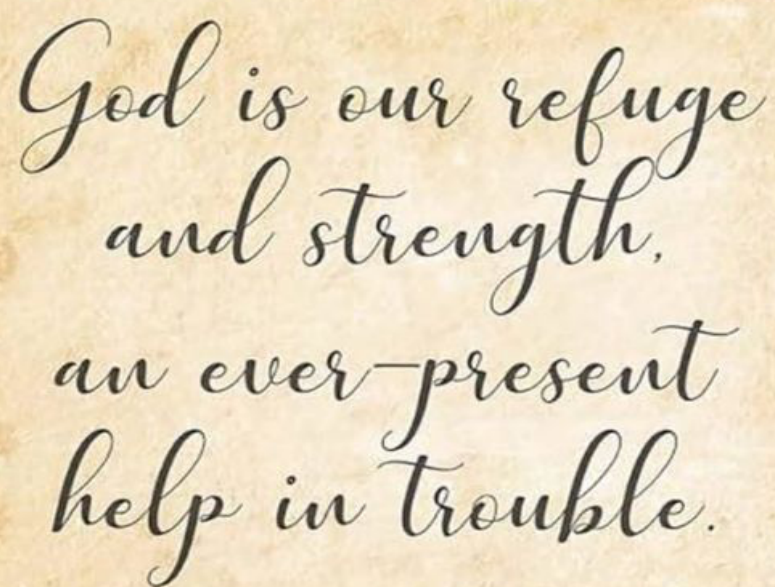 God is our refuge
and strength,
an ever-present
help in trouble.